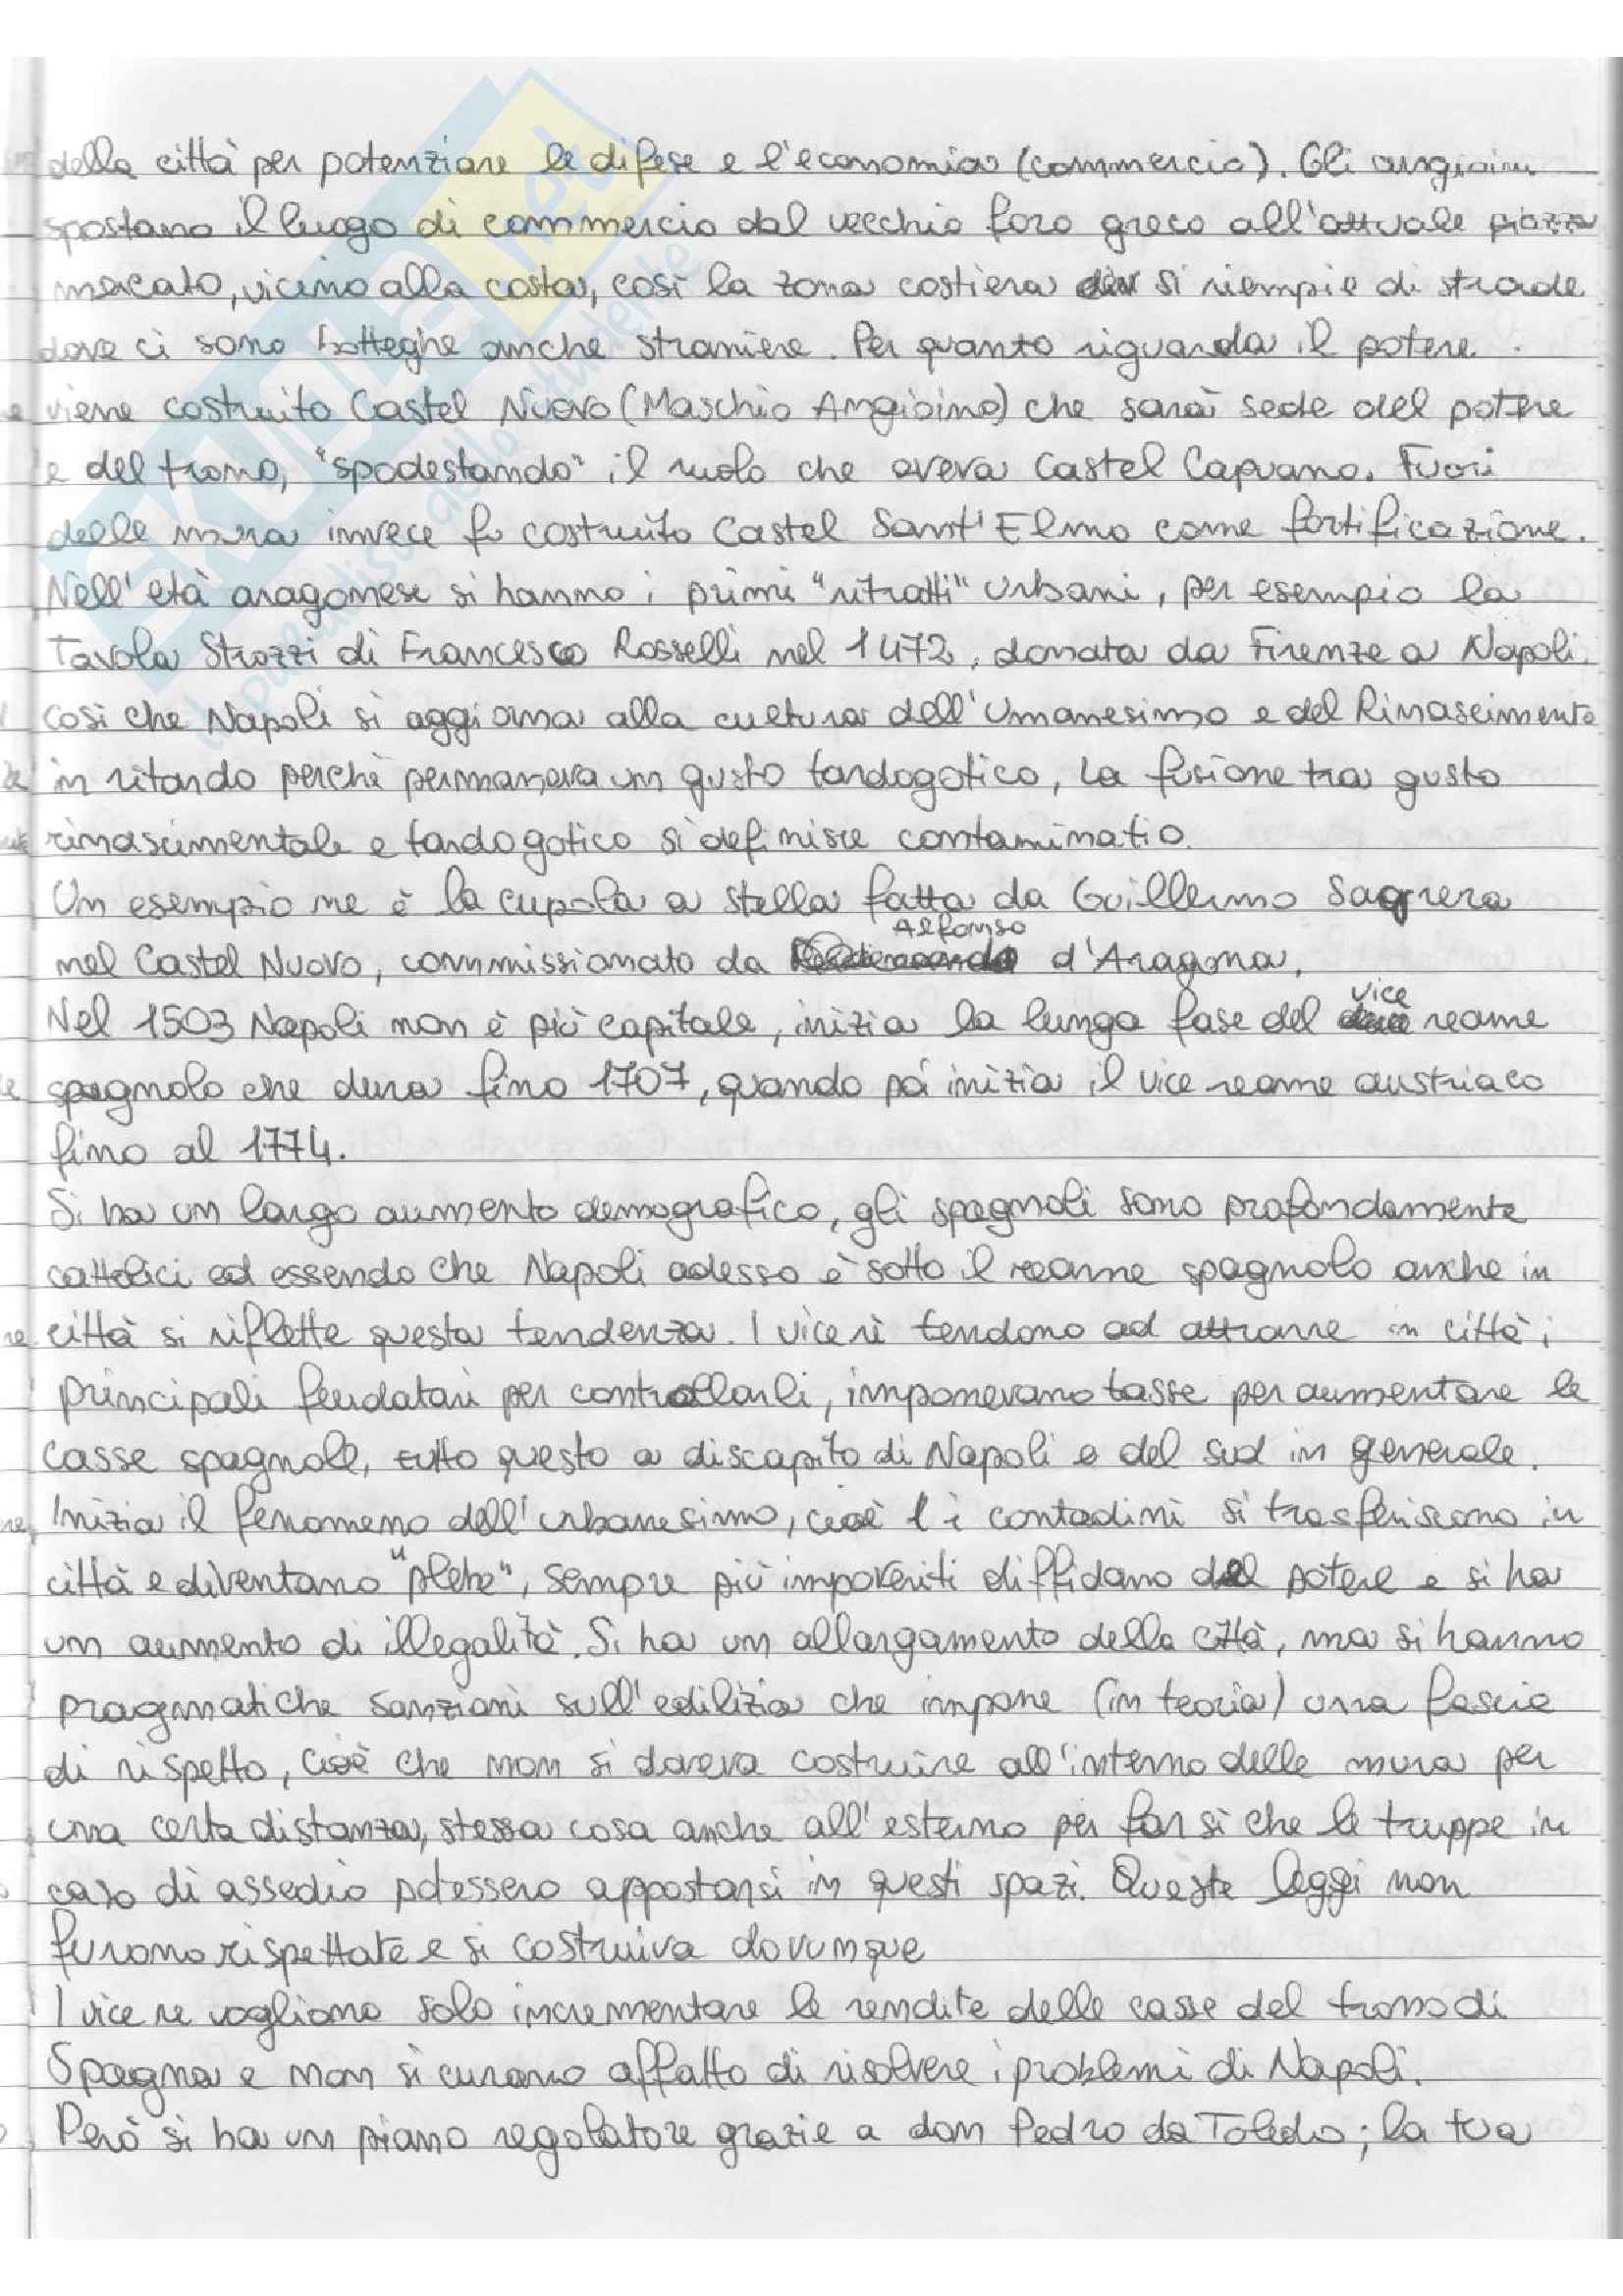 della città per potenziare le difese e l'economia (commercio). Gli angioini
spostano il luogo di commercio dal vecchio foro greco all'attuale piazza
mercato, vicino alla costa, così la zona costiera si riempie di strade
dove ci sono botteghe anche straniere. Per quanto riguarda il potere
viene costruito Castel Nuovo (Maschio Angioino) che sarà sede del potere
e del trono, "spodestando" il ruolo che aveva Castel Capuano. Fuori
delle mura invece fu costruito Castel Sant'Elmo come fortificazione.
Nell'età aragonese si hanno i primi "ritratti" urbani, per esempio la
Tavola Strozzi di Francesco Rosselli nel 1472, donata da Firenze a Napoli.
così che Napoli si aggiorna alla cultura dell'Umanesimo e del Rinascimento
in ritardo perchè permaneva un gusto tardogotico, la fusione tra gusto
rinascimentale e tardogotico si definisce contaminatio.
Un esempio ne è la cupola a stella fatta da Guillermo Sagrera
nel Castel Nuovo, commissionato da Alfonso d'Aragona.
Nel 1503 Napoli non è più capitale, inizia la lunga fase del vice reame
spagnolo che dura fino 1707, quando poi inizia il vice reame austriaco
fino al 1774.
Si ha un largo aumento demografico, gli spagnoli sono profondamente
cattolici ed essendo che Napoli adesso è sotto il reame spagnolo anche in
città si riflette questa tendenza. I vice rè tendono ad attrarre in città i
principali feudatari per controllarli, imponevano tasse per aumentare le
casse spagnole, tutto questo a discapito di Napoli e del sud in generale.
Inizia il fenomeno dell'urbanesimo, cioè i contadini si trasferiscono in
città e diventano "plebe", sempre più impoveriti diffidano del potere e si ha
un aumento di illegalità. Si ha un allargamento della città, ma si hanno
pragmatiche sanzioni sull'edilizia che impone (in teoria) una fascia
di rispetto, cioè che non si doveva costruire all'interno delle mura per
una certa distanza, stessa cosa anche all'esterno per far si che le truppe in
caso di assedio potessero appostarsi in questi spazi. Queste leggi non
furono rispettate e si costruiva dovunque
I vice re vogliono solo incrementare le rendite delle casse del trono di
Spagna e non si curano affatto di risolvere i problemi di Napoli.
Però si ha un piano regolatore grazie a don Pedro da Toledo; la tua
SKUOLA.net
il paradiso dello studente